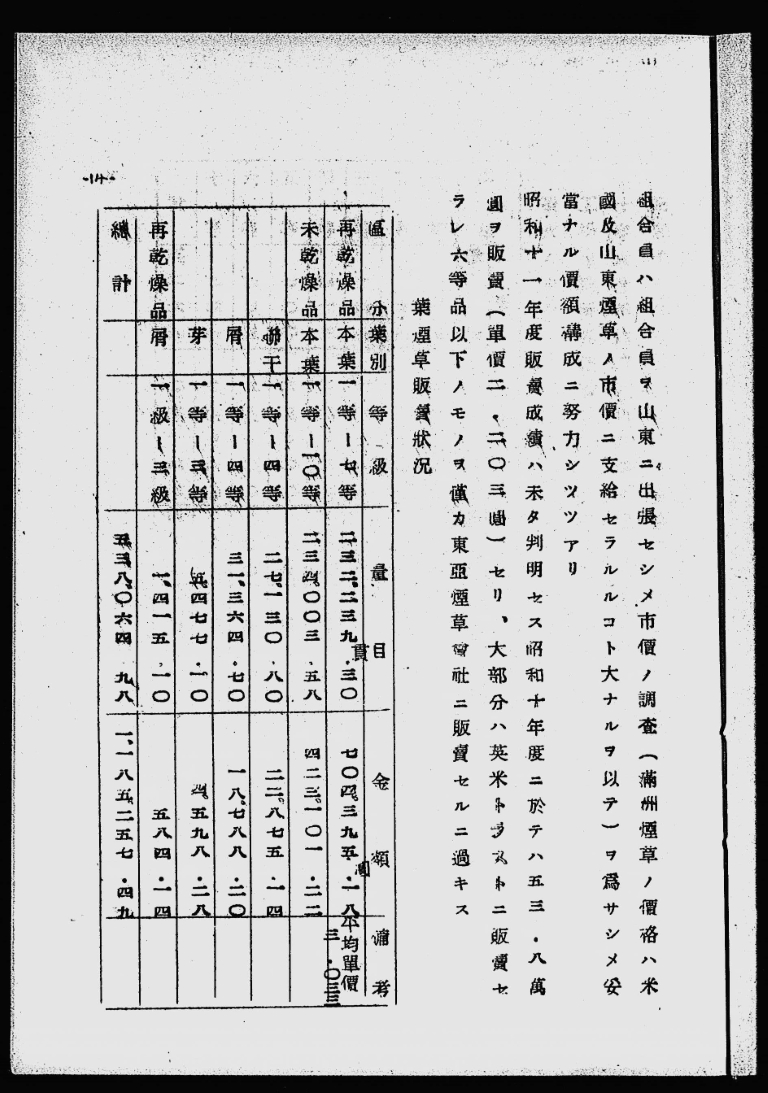 組合員ハ組合員ヲ山東ニ出張セシメ市價ノ調査(滿洲煙草ノ價格ハ米
國及山東煙草ノ市價ニ支給セラルルコト大ナルヲ以テ)ヲ爲サシメ妥
當ナル價額構成ニ努力シツツアリ
昭和十一年度販賣成績ハ未タ判明セス昭和十年度ニ於テハ五三・八萬
圓ヲ販賣(單價二・二〇三圓)セリ、大部分ハ英米トラストニ販賣セ
ラレ六等品以下ノモノヲ僅カ東亞煙草會社ニ販賣セルニ過キス
葉煙草販賣狀況
區分 葉別 等級 量目 金額 備考
再乾燥品 本葉 一等ー七等 二三二、二三九・三〇貫 七〇四、三九五・一八圓 平均單價 三・〇三三
未乾燥品 本葉 一等ー一〇等 二三四、〇〇三・五八 四二三、一〇一・二二
聯干 一等ー四等 二七、一三〇・八〇 二二、八七五・一四
屑 一等ー四等 三一、三六四・七〇 一八、七八八・二〇
芽 一等ー三等 五、四七七・一〇 四、五九八・二八
再乾燥品 屑 一級ー三級 一、四一五・一〇 五八四・一四
總計 五三八、〇六四 九八 一、一八五、二五七・四九
-14-